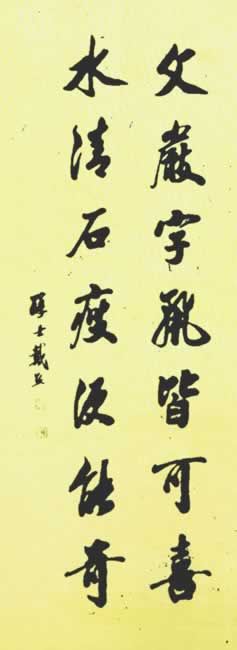 文嚴字麗皆可喜
水清石瘦便能奇
醇士戴熙